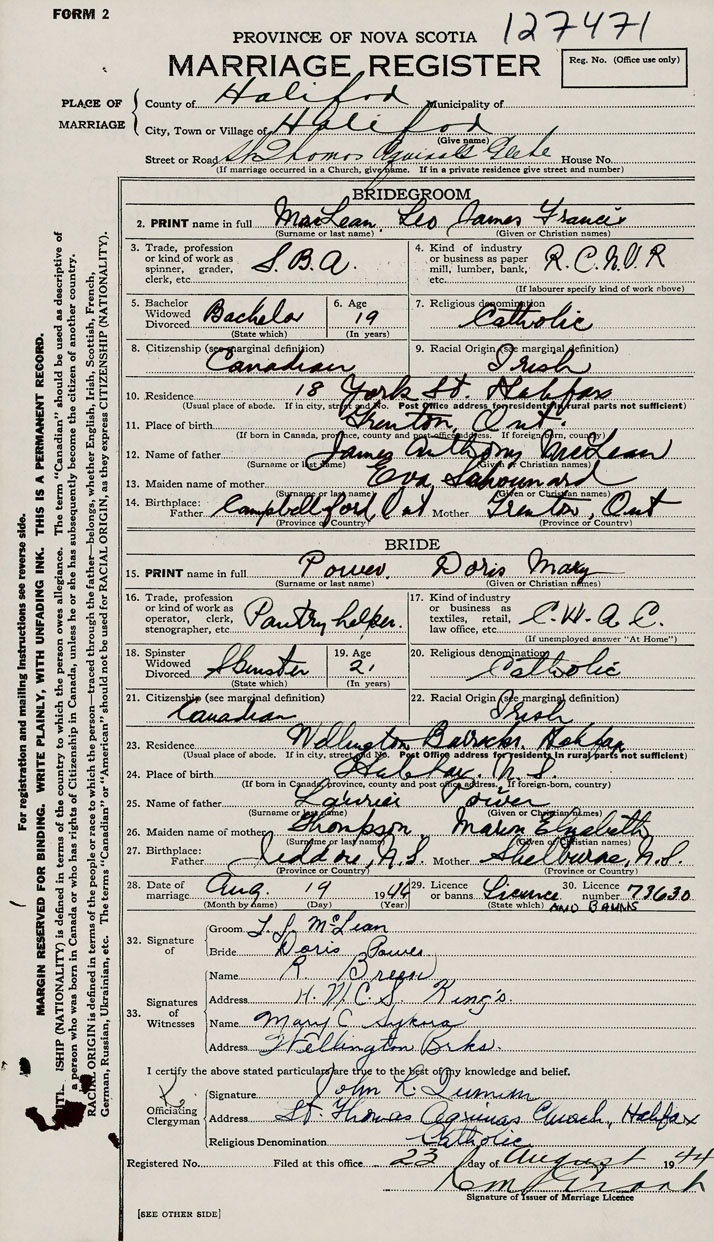 FORM 2
127471
PROVINCE OF NOVA SCOTIA
MARRIAGE REGISTER
Reg. No. (Office use only)
PLACE OF MARRIAGE
County of Halifax Municipality of
City, Town or Village of Halifax
(Give name)
Street or Road St Thomas Aquinas Glebe House No.
(If marriage occurred in a Church, give name. If in a private residence give street and number)
BRIDEGROOM
2. PRINT name in full MacLean, Leo James Francis
(Surname or last name) (Given or Christian names)
3. Trade, profession or kind of work as spinner, grader, clerk, etc. S.B.A.
4. Kind of industry or business as paper mill, lumber, bank, etc. R.C.N.V.R
(If labourer specify kind of work above)
5. Bachelor Widowed Divorced Bachelor
(State which)
6. Age 19
(In years)
7. Religious denomination Catholic
8. Citizenship (see marginal definition) Canadian
9. Racial Origin (see marginal definition) Irish
10. Residence 18 York St. Halifax
(Usual place of abode. If in city, street and No. Post Office address for residents in rural parts not sufficient)
11. Place of birth Trenton, Ont.
(If born in Canada, province, county and post office address. If foreign born, county)
12. Name of father James Anthony McLean
(Surname or last name) (Given or Christian names)
13. Maiden name of mother Eva
(Surname or last name) (Given or Christian names)
14. Birthplace: Father Campbellford Ont Mother Trenton, Ont
(Province or Country) (Province or Country)
BRIDE
15. PRINT name in full Power, Doris Mary
(Surname or last name) (Given or Christian names)
16. Trade, profession or kind of work as operator, clerk, stenographer, etc. Pantry helper.
17. Kind of industry or business as textiles, retail, law office, etc. C.W.A.C.
(If unemployed answer "At Home")
18. Spinster Widowed Divorced Spinster
(State which)
19. Age
(In years)
20. Religious denomination Catholic
21. Citizenship (see marginal definition) Canadian
22. Racial Origin (see marginal definition) Irish
23. Residence Wellington Barracks, Halifax
(Usual place of abode. If in city, street and No. Post Office address for residents in rural parts not sufficient)
24. Place of birth Halifax, N.S.
(If born in Canada, province, county and post office address. If foreign-born, country)
25. Name of father Power
(Surname or last name) (Given or Christian names)
26. Maiden name of mother Thompson, Marion Elizabeth
(Surname or last name) (Given or Christian names)
27. Birthplace: Father Jeddore, N.S. Mother Shelburne, N.S.
(Province or Country) (Province or Country)
28. Date of marriage Aug. 19 1944
(Month by name) (Day) (Year)
29. Licence or banns Licence AND BANNS
(State which)
30. Licence number 73630
32. Signature of
Groom L. J. McLean
Bride Doris Power
33. Signatures of Witnesses
Name R. Breen
Address H.M.C.S. King's.
Name Mary C Sykora
Address Wellington Brks.
I certify the above stated particulars are true to the best of my knowledge and belief.
Officiating Clergyman
Signature John L.
Address St. Thomas Aquinas Church, Halifax
Religious Denomination Catholic
Registered No. Filed at this office 23 day of August 1944
Signature of Issuer of Marriage Licence
[SEE OTHER SIDE]
For registration and mailing instructions see reverse side.
MARGIN RESERVED FOR BINDING. WRITE PLAINLY, WITH UNFADING INK. THIS IS A PERMANENT RECORD.
SHIP (NATIONALITY) is defined in terms of the country to which the person owes allegiance. The term "Canadian" should be used as descriptive of
a person who was born in Canada or who has rights of Citizenship in Canada, unless he or she has subsequently become the citizen of another country.
RACIAL ORIGIN is defined in terms of the people or race to which the person—traced through the father—belongs, whether English, Irish, Scottish, French,
German, Russian, Ukrainian, etc. The terms "Canadian" or "American" should not be used for RACIAL ORIGIN, as they express CITIZENSHIP (NATIONALITY).